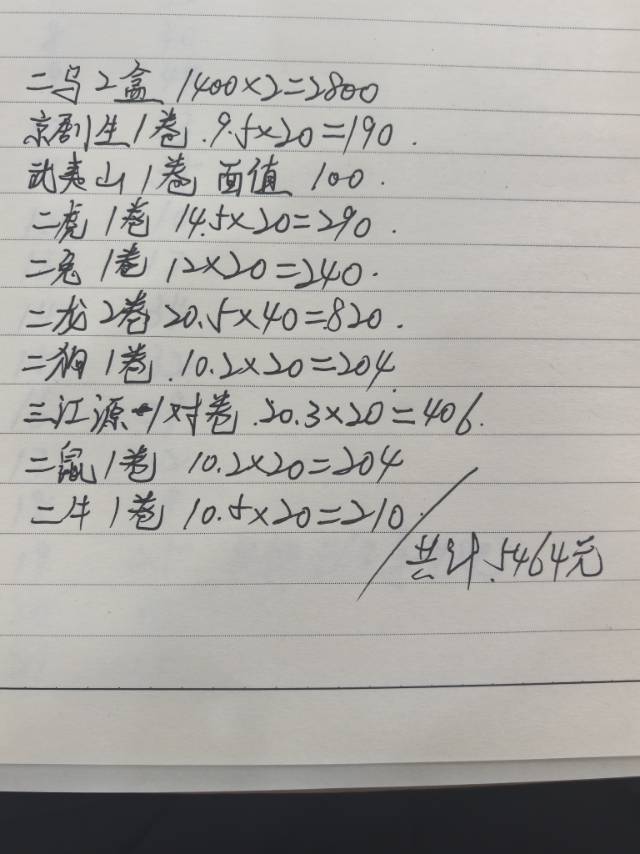 二乌2盒 1400×2=2800
京剧生1卷.9.5×20=190.
武夷山1卷 面值 100.
二虎1卷 14.5×20=290.
二兔1卷 12×20=240.
二龙2卷 20.5×40=820.
二狗1卷.10.2×20=204.
三江源一1对卷.20.3×20=406.
二鼠1卷 10.2×20=204
二牛1卷 10.5×20=210.
共计.5464元